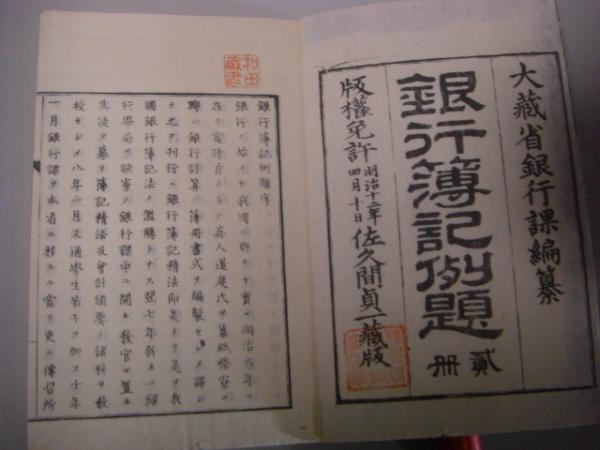 大藏省銀行課編纂
銀行簿記例題
貳册
版權免許
明治十二年
四月十日
佐久間貞一藏版
和田
藏書
銀行簿記例題序
銀行ノ始メテ我國ニ興ルヤ實ニ明治六年ニ
在リ當時
英人
氏ヲ
聘シ銀行計算ノ簿册書式ヲ編製セシメ譯シ
テ之ヲ刊行ス銀行簿記精法即是ナリ是ヲ我
國銀行簿記法ノ濫觴トナス翌七年
行學局
銀行課中ニ開キ教官ヲ置キ
生徒ヲ募リ簿記精法及會計須要ノ諸科ヲ教
校セシメ八年
月又通學生若干ヲ加ヘ十年
一月銀行課ヲ本省ニ移スニ當リ更ニ傳習所